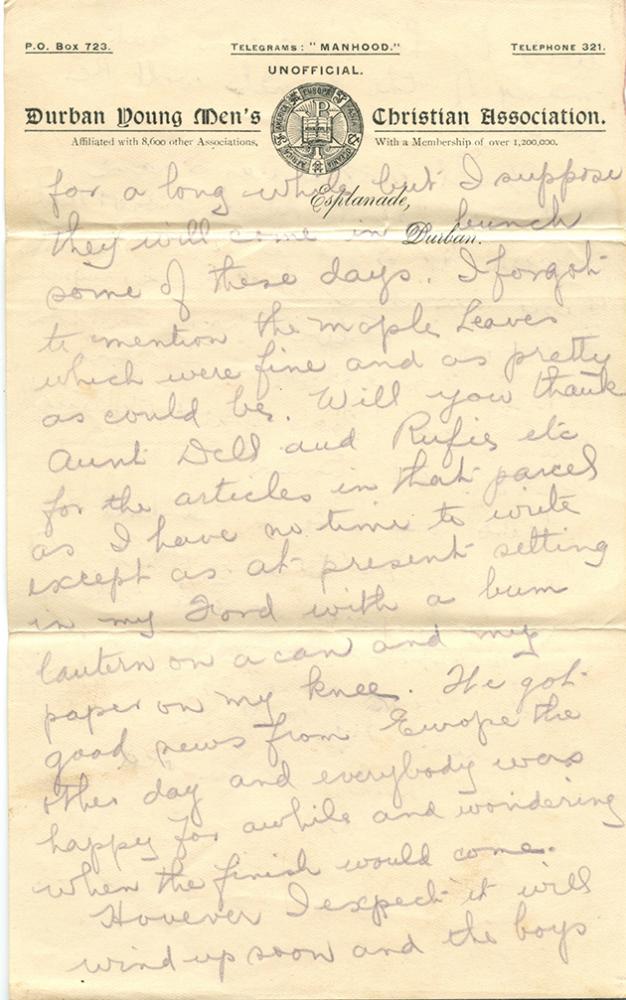 P.O. Box 723.
TELEGRAMS: "MANHOOD."
TELEPHONE 321.
UNOFFICIAL.
Durban Young Men's Christian Association.
Affiliated with 8,600 other Associations, With a Membership of over 1,200,000.
Esplanade,
Durban.
for a long while but I suppose
they will come in bunch
some of these days. I forgot
to mention the maple leaves
which were fine and as pretty
as could be. Will you thank
Aunt Dell and Rufie etc
for the articles in that parcel
as I have no time to write
except as at present setting
in my Ford with a bum
lantern on a can and my
paper on my knee. We got
good news from Europe the
other day and everybody was
happy for awhile and wondering
when the finish would come.
However I expect it will
wind up soon and the boys